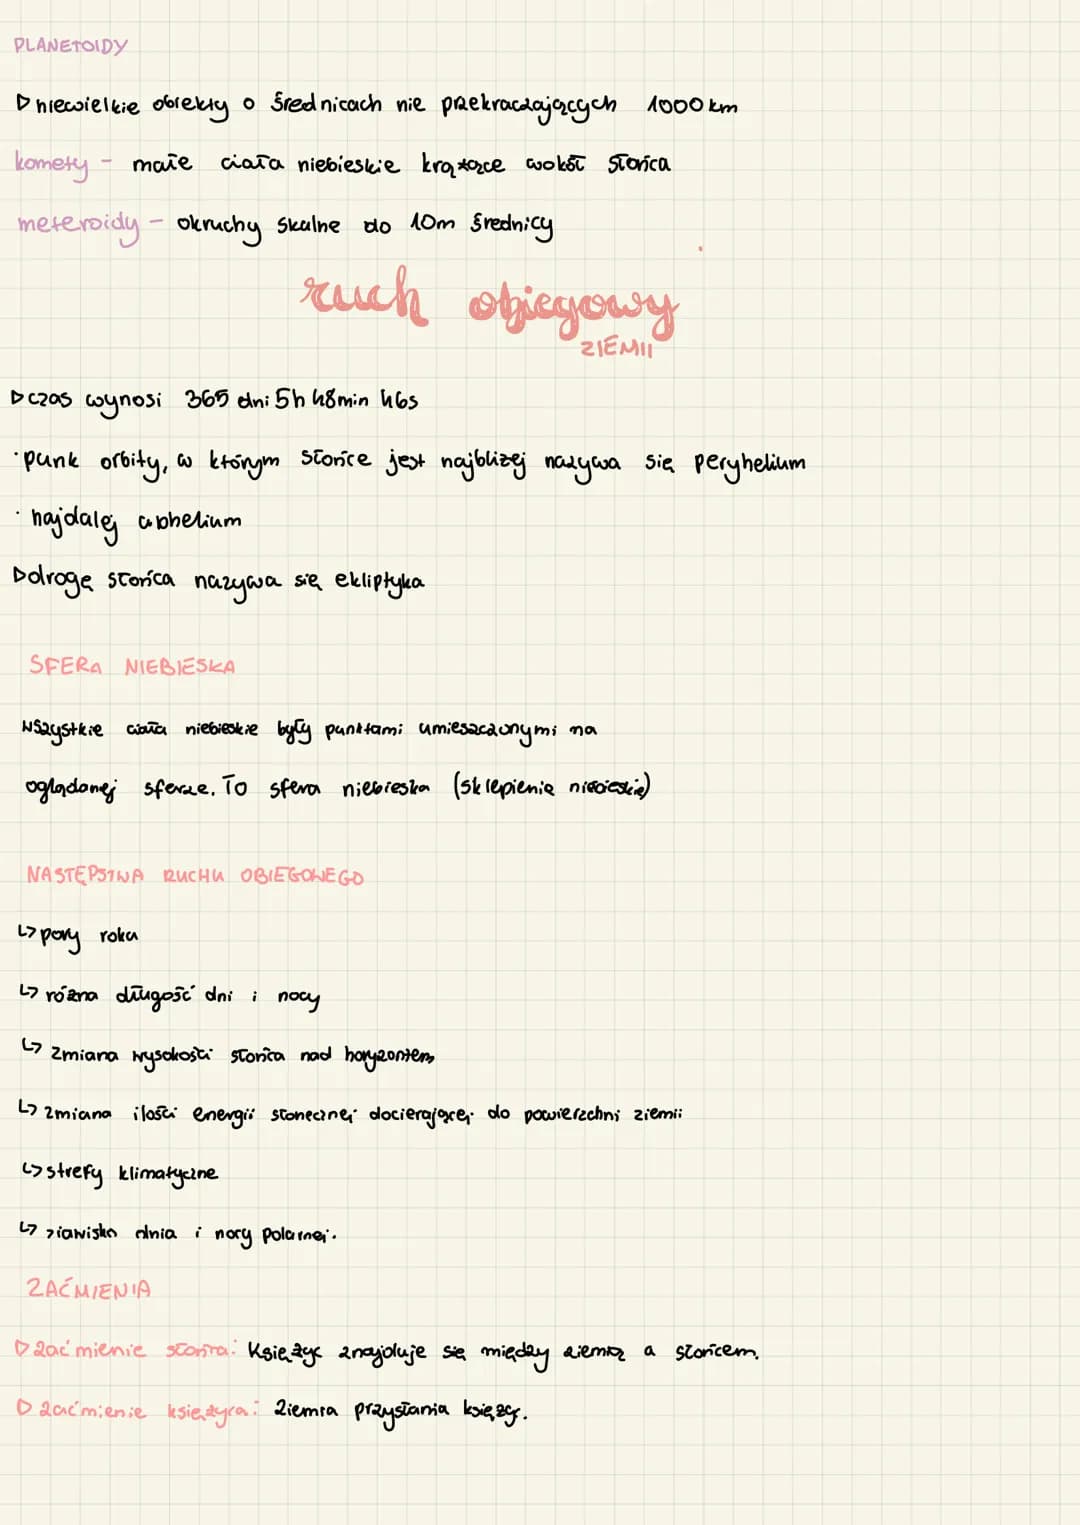 PLANETOIDY
▷ niewielkie obiekty o średnicach nie przekraczających 1000 km
komety - małe ciała niebieskie krążące wokół słońca
meteroidy - okruchy skalne do 10m średnicy
ruch obiegowy
ZIEMII
▷ czas wynosi 365 dni 5h 48min 46s
· punk orbity, w którym słońce jest najbliżej nazywa się peryhelium
· najdalej aphelium
▷ drogę słońca nazywa się ekliptyka
SFERA NIEBIESKA
wszystkie ciała niebieskie były punktami umieszczonymi na
oglądanej sferze. To sfera niebieska (sklepienie niebieskie)
NASTĘPSTWA RUCHU OBIEGOWEGO
↳ pory roku
↳ różna długość dni i nocy
↳ zmiana wysokości słońca nad horyzontem
↳ zmiana ilości energii słonecznej docierającej do powierzchni ziemii
↳ strefy klimatyczne
↳ zjawisko dnia i nocy polarnej.
ZAĆMIENIA
▷ zaćmienie słońca: Księżyc znajduje się między ziemią a słońcem.
▷ zaćmienie księżyca: Ziemia przysłania księżyc.